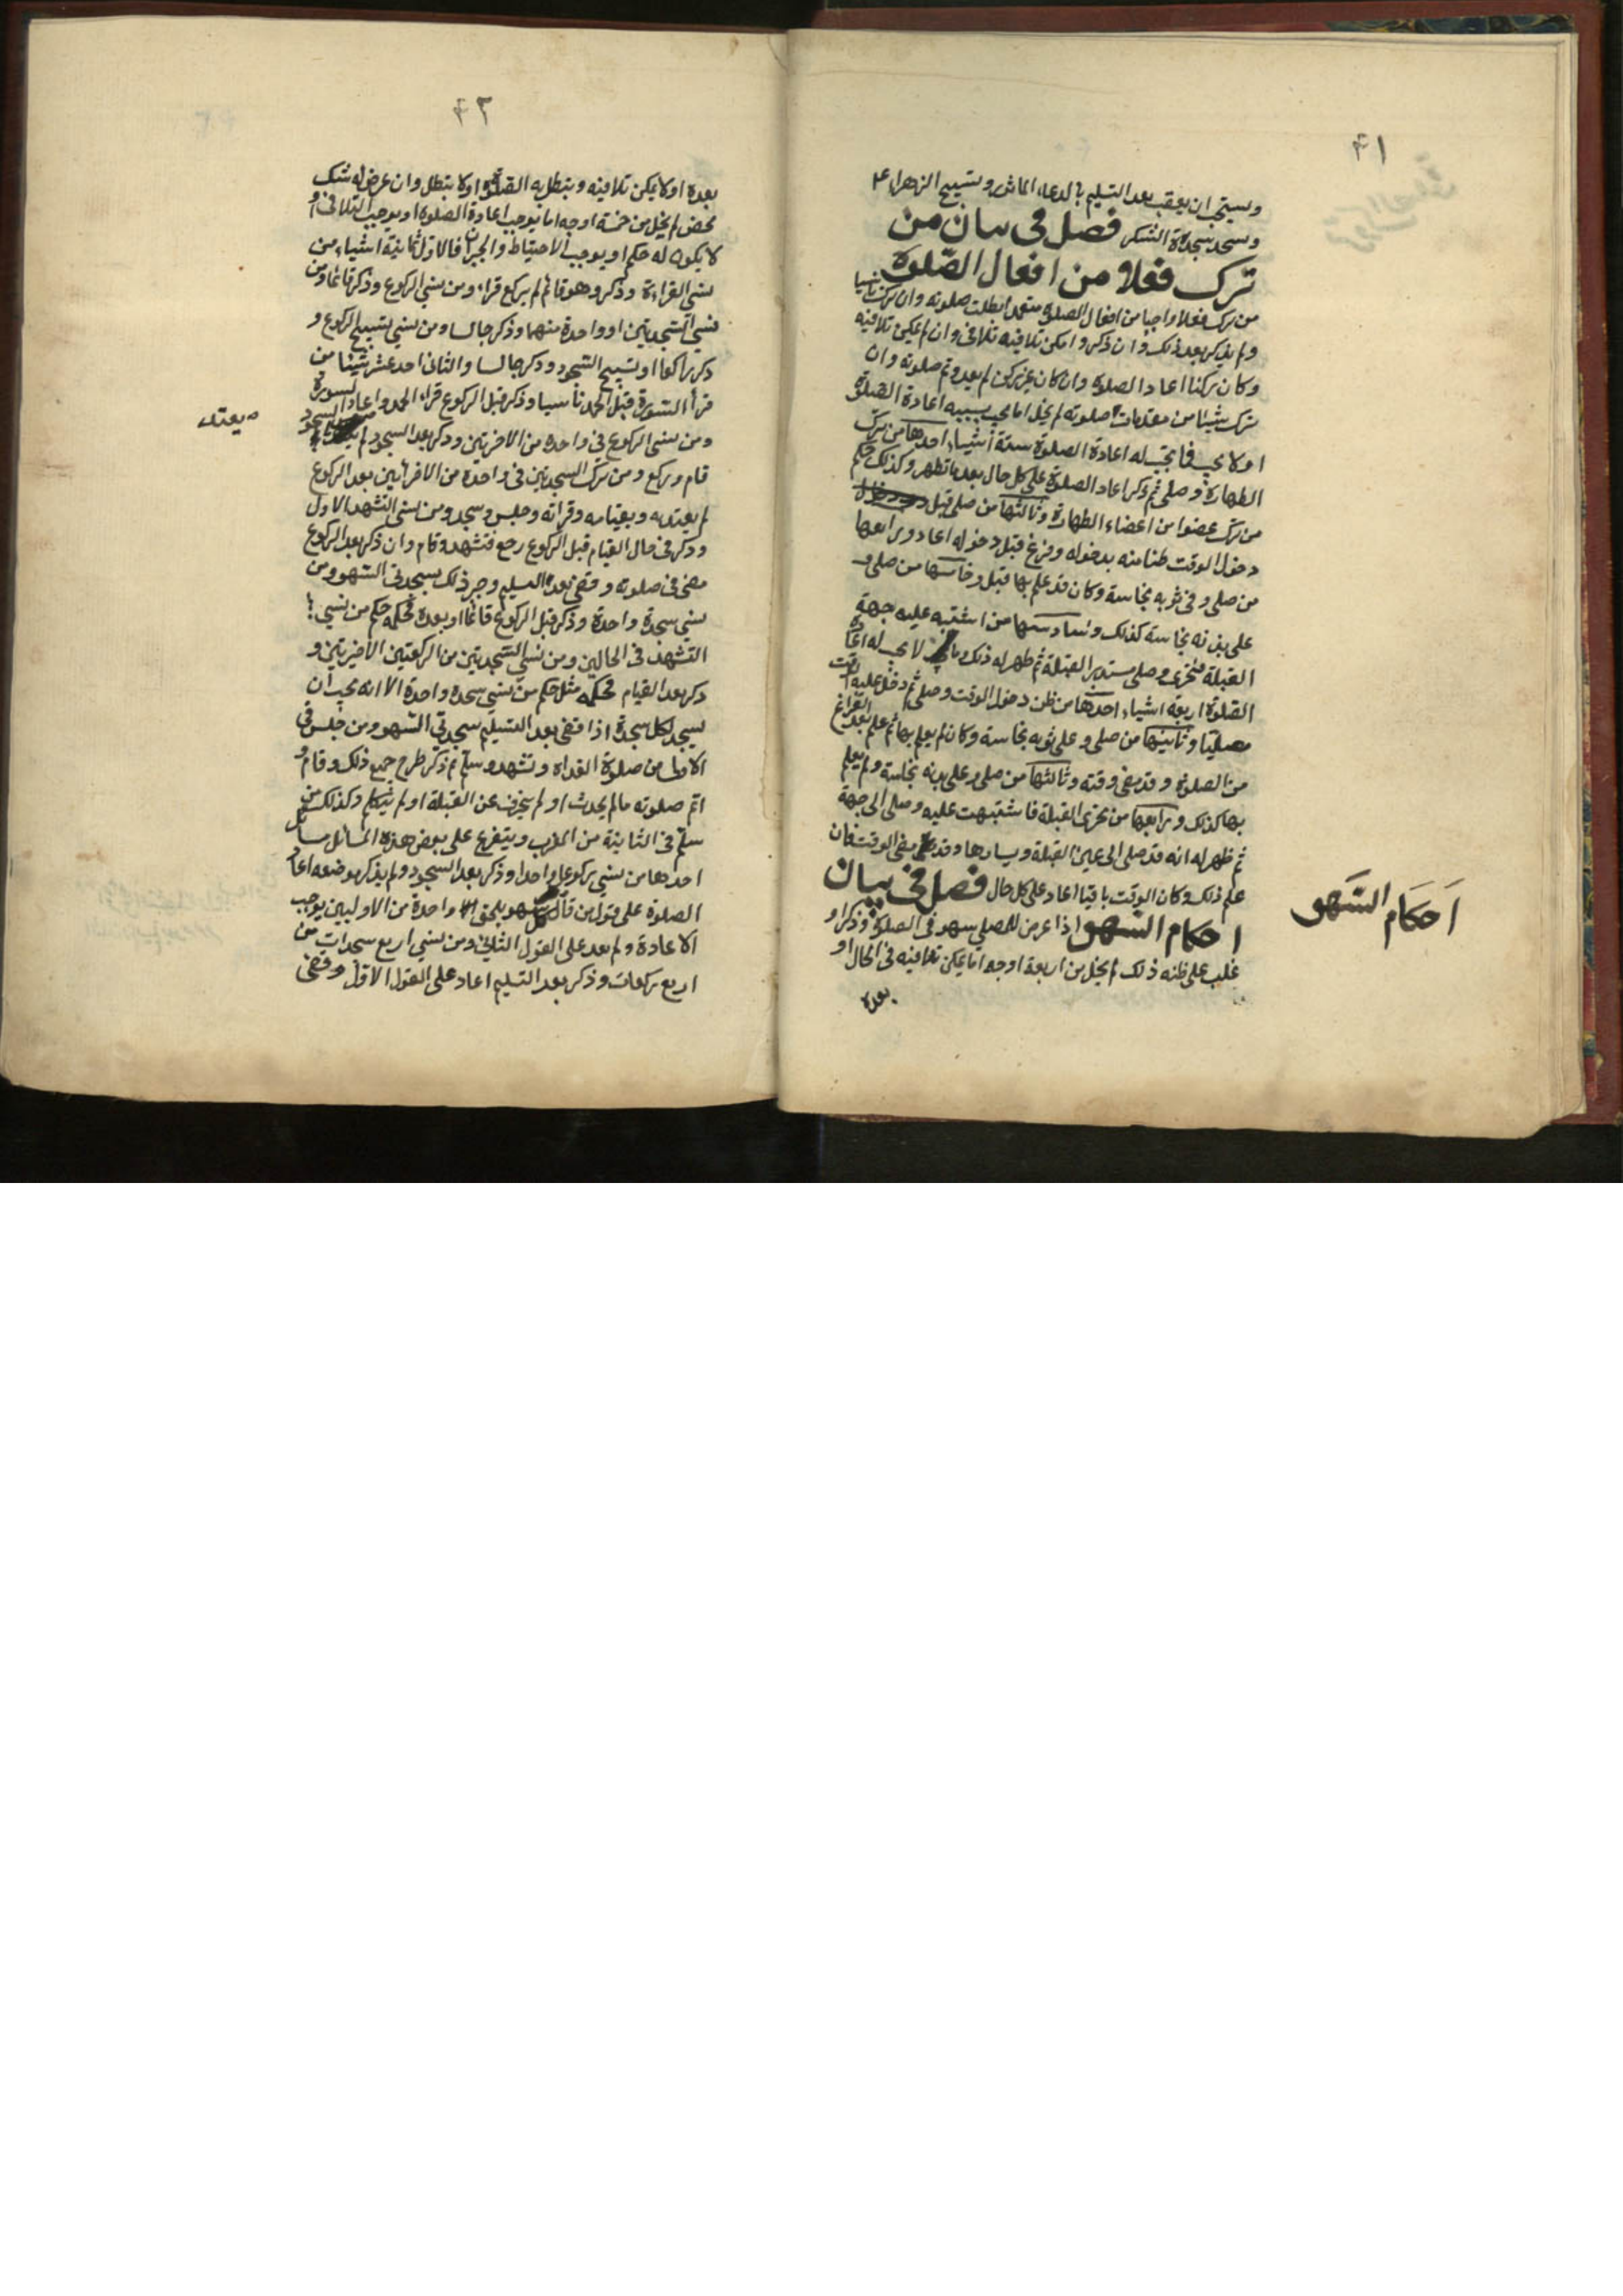 ٤١
ويستحب ان يعقب بعد التسليم بالدعاء الماثور وبتسبيح الزهراء ع
ويسجد سجدة الشكر فصل فى بيان من
ترك فعلا من افعال الصلوة
من ترك فعلا واجبا من افعال الصلوة متعمدا بطلت صلوته وان ترك ناسيا
ولم يذكر بعد ذلك وان ذكر وامكن تلافيه تلافى وان لم يمكن تلافيه
وكان ركنا اعاد الصلوة وان كان غير ركن لم يعد وتم صلوته وان
ترك شيئا من مقدمات صلوته لم يخل اما يجب بسببه اعادة الصلوة
او لا يجب فما يجب له اعادة الصلوة ستة اشياء احدها من ترك
الطهارة وصلى ثم ذكر اعاد الصلوة على كل حال بعد ما تطهر وكذلك حكم
من ترك عضوا من اعضاء الطهارة وثالثها من صلى قبل
دخول الوقت ظنا منه بدخوله وفرغ قبل دخوله اعاد ورابعها
من صلى وفى ثوبه نجاسة وكان قد علم بها قبل وخامسها من صلى و
على بدنه نجاسة كذلك وسادسها من اشتبه عليه جهة
القبلة فتحرى وصلى مستدبر القبلة ثم ظهر له ذلك وما لا يجب له اعادة
الصلوة اربعة اشياء احدها من ظن دخول الوقت وصلى ثم دخل عليه الوقت
مصليا وثانيها من صلى وعلى ثوبه نجاسة وكان لم يعلم بها ثم علم بعد الفراغ
من الصلوة وقد مضى وقته وثالثها من صلى وعلى بدنه نجاسة ولم يعلم
بها كذلك ورابعها من تحرى القبلة فاشتبهت عليه وصلى الى جهة
ثم ظهر له انه قد صلى الى يمين القبلة ويسارها وقد مضى الوقت فان
علم ذلك وكان الوقت باقيا اعاد على كل حال فصل فى بيان
احكام السهو اذا عرض للمصلى سهو فى الصلوة وذكر او
غلب على ظنه ذلك لم يخل من اربعة اوجه اما يمكن تلافيه فى الحال او
بعده
اَحكَام السَّهو
٤٢
بعده او لا يمكن تلافيه ويبطل به الصلوة او لا يبطل وان عرض له شك
محض لم يخل من خمسة اوجه اما يوجب اعادة الصلوة او يوجب التلافى او
لا يكون له حكم او يوجب الاحتياط والجبران فالاول ثمانية اشياء من
نسى القراءة وذكر وهو قائم لم يركع قراء ومن نسى الركوع وذكر قائما ومن
نسى السجدتين او واحدة منهما وذكر جالسا ومن نسى تسبيح الركوع و
ذكر راكعا او تسبيح السجود وذكر جالسا والثانى احد عشر شيئا من
قرأ السورة قبل الحمد ناسيا وذكر قبل الركوع قراء الحمد واعاد السورة
ومن نسى الركوع فى واحدة من الاخرتين وذكر بعد السجود لم بالسجود
يعتد
قام وركع ومن ترك السجدتين فى واحدة من الاخرايين بعد الركوع
لم يعتد به وبقيامه وقرائة وجلس وسجد ومن نسى التشهد الاول
وذكر فى حال القيام قبل الركوع رجع فتشهد وقام وان ذكر بعد الركوع
مضى فى صلوته وقضى بعد التسليم وجبر ذلك بسجدتى السهو ومن
نسى سجدة واحدة وذكر قبل الركوع قائما او بعده فحكمه حكم من نسى
التشهد فى الحالين ومن نسى السجدتين من الركعتين الاخيرتين و
ذكر بعد القيام فحكمه مثل حكم من نسى سجدة واحدة الا انه يجب ان
يسجد لكل سجدة اذا قضى بعد التسليم سجدتى السهو ومن جلس فى
الاولى من صلوة الغداة وتشهد وسلم ثم ذكر طرح جميع ذلك وقام و
اتم صلوته ما لم يحدث او لم ينحرف عن القبلة او لم يتكلم وكذلك من
سلم فى الثانية من المغرب ويتفرع على بعض هذه المسائل مسائل
احدها من نسى ركوعا واحدا وذكر بعد السجود ولم يذكر موضعه اعاد
الصلوة على قول من قال كل سهو يلحق واحدة من الاوليين يوجب
الاعادة ولم يعد على القول الثانى ومن نسى اربع سجدات من
اربع ركعات وذكر بعد التسليم اعاد على القول الاول وقضى